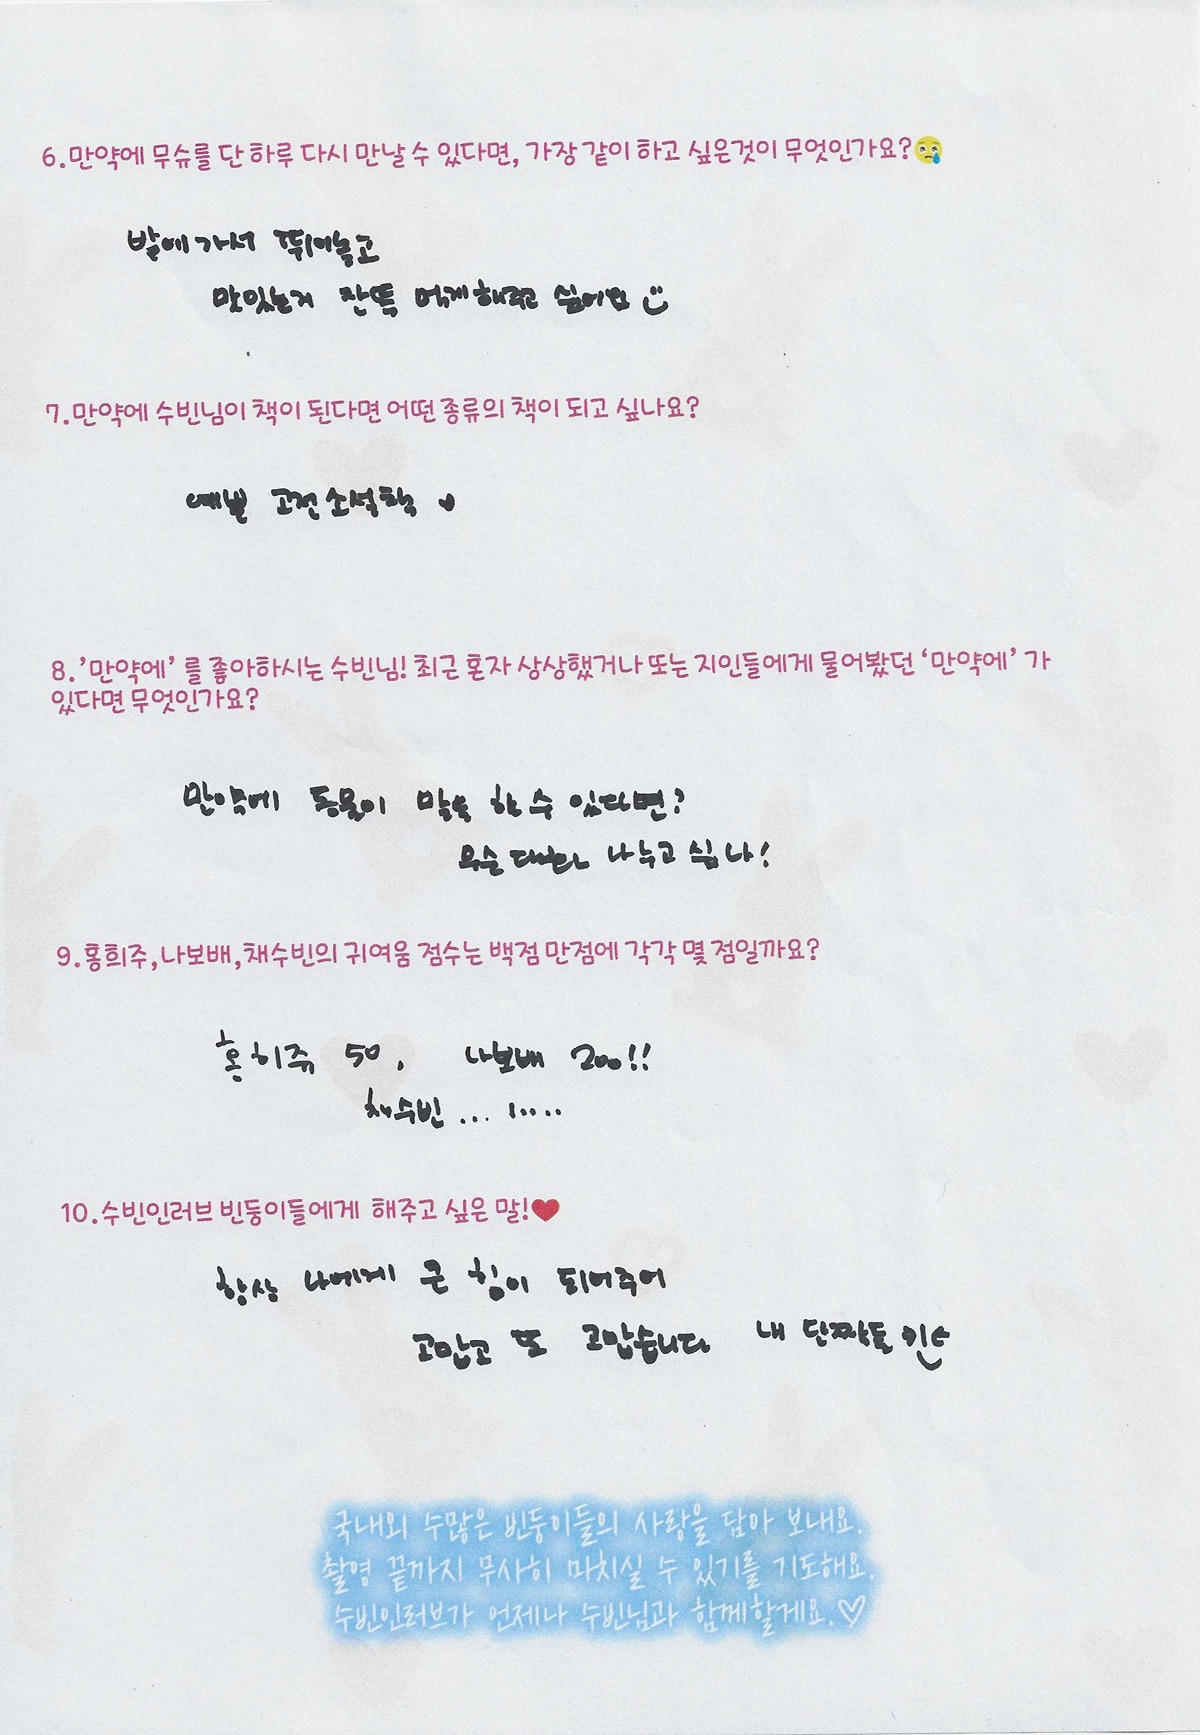 6.만약에 무슈를 단 하루 다시 만날 수 있다면, 가장 같이 하고 싶은것이 무엇인가요?😢
밭에 가서 뛰어놀고
맛있는거 잔뜩 먹게해주고 싶어요
7.만약에 수빈님이 책이 된다면 어떤 종류의 책이 되고 싶나요?
예쁜 고전소설책
8.'만약에' 를 좋아하시는 수빈님! 최근 혼자 상상했거나 또는 지인들에게 물어봤던 '만약에' 가
있다면 무엇인가요?
만약에 동물이 말을 할 수 있다면?
무슨 대화 나누고 싶나!
9.홍희주,나보배,채수빈의 귀여움 점수는 백점 만점에 각각 몇 점일까요?
홍희주 50, 나보배 200!!
채수빈 ... 1.....
10.수빈인러브 빈둥이들에게 해주고 싶은 말!❤
항상 나에게 큰 힘이 되어주어
고맙고 또 고맙습니다 내 단짝들
국내외 수많은 빈둥이들의 사랑을 담아 보내요.
촬영 끝까지 무사히 마치실 수 있기를 기도해요.
수빈인러브가 언제나 수빈님과 함께할게요.♡